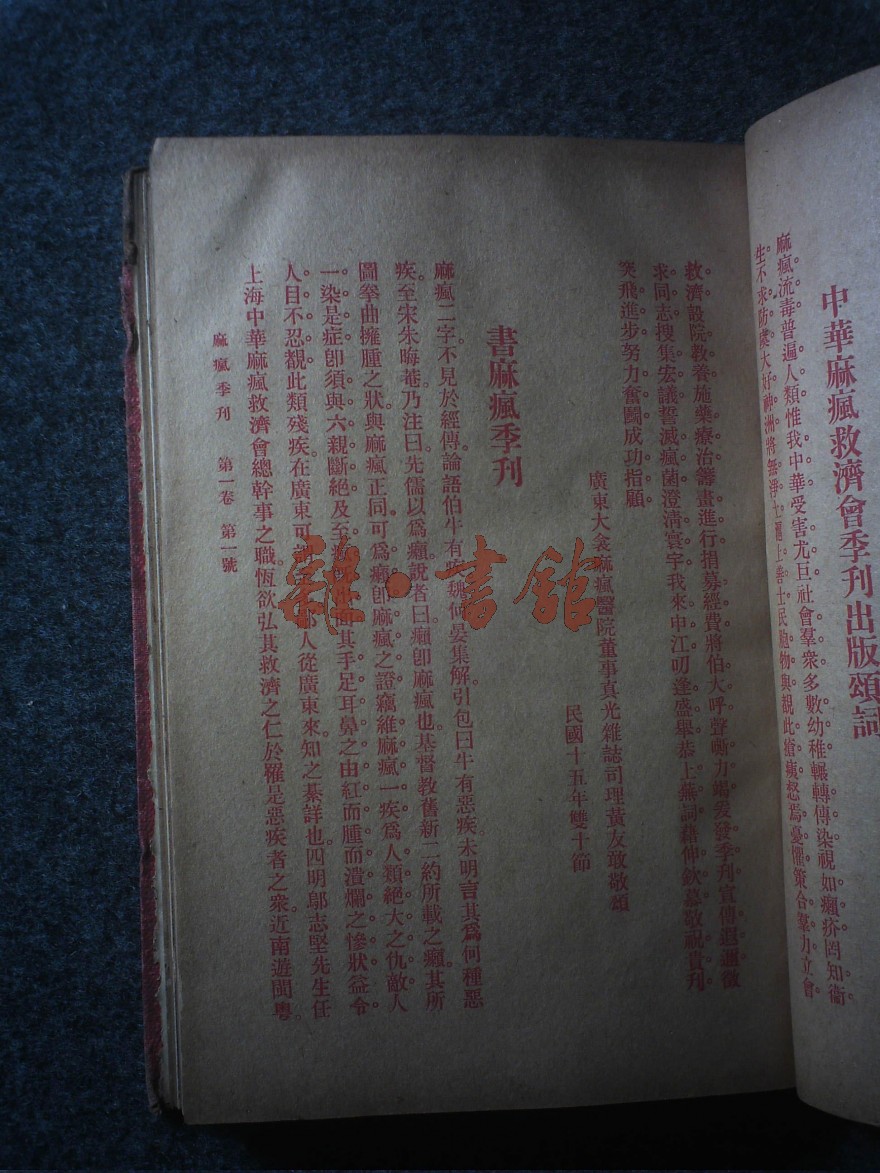 中華麻瘋救濟會季刊出版頌詞
麻瘋流毒普遍人類惟我中華受害尤巨社會羣衆多數幼稚輾轉傳染視如瘋疥罔知衞
生不求防禦大好神洲將無淨土 善士民胞物與覩此瘡痍怒焉憂懼羣力立會
救濟設院教養施藥療治籌畫進行捐募經費將伯大呼聲嘶力竭爰發季刊宣傳遐邇徵
求同志搜集宏議誓滅瘋菌澄清寰宇我來申江叨逢盛舉恭上蕪詞藉伸欽慕敬祝貴刊
突飛進步努力奮鬭成功指顧
廣東大衾麻瘋醫院董事真光雜誌司理黃友敢敬頌
民國十五年雙十節
書麻瘋季刊
麻瘋二字不見於經傳論語伯牛有疾魏何晏集解引包曰牛有惡疾未明言其爲何種惡
疾至宋朱晦菴乃注曰先儒以爲癩說者曰癩卽麻瘋也基督教舊新二約所載之癩其所
圖拳曲擁腫之狀與麻瘋正同可爲癩卽麻瘋之證竊維麻瘋一疾爲人類絕大之仇敵人
一染是症卽須與六親斷絕及至 面其手足耳鼻之由紅而腫而潰爛之慘狀益令
人目不忍覩此類殘疾在廣東可 人從廣東來知之綦詳也四明鄔志堅先生任
上海中華麻瘋救濟會總幹事之職恆欲弘其救濟之仁於罹是惡疾者之衆近南遊閩粵
麻瘋季刊 第一卷 第一號
雜·書館